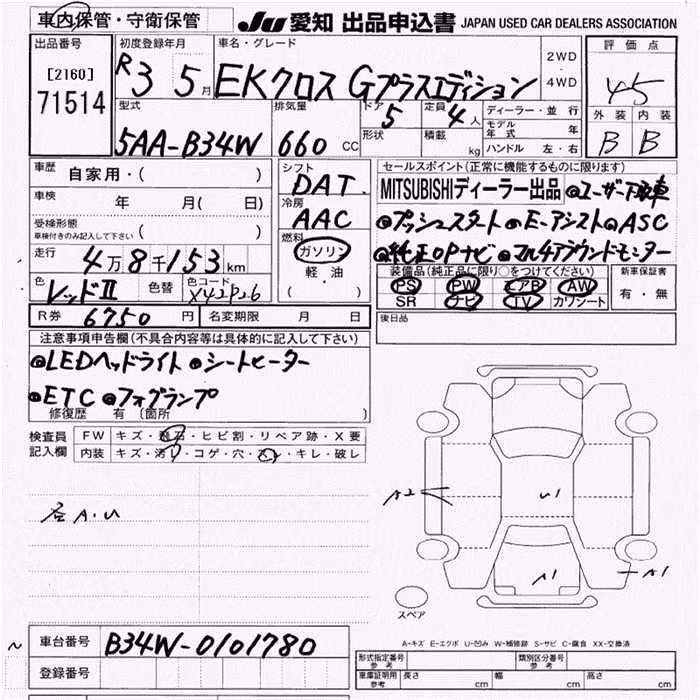 車内保管・守衛保管
JU 愛知 出品申込書 JAPAN USED CAR DEALERS ASSOCIATION
出品番号
[2160]
71514
初度登録年月
R3 5月
車名・グレード
EKクロス Gプラスエディション
2WD・4WD
評価点
4.5
外装 内装
B B
型式
5AA-B34W
排気量
660 CC
ドア 5
形状
定員 4人
積載 kg
ディーラー・並行
モデル年式 年
ハンドル 左・右
車歴 自家用・( )
車検 年 月( 日)
受検形態
車検付きのみ記入して下さい ( )
走行 4万8千153km
色 レッドII 色替 色コード X42P26
R券 6750円 名変期限 月 日
シフト
DAT
冷房
AAC
燃料
ガソリン
軽・油
( )
セールスポイント(正常に機能するものに限ります)
MITSUBISHIディーラー出品 ●ユーザー下取車
●プッシュスタート ●E-アシスト ●ASC
●純正OPナビ ●マルチアラウンドモニター
装備品(純正品に限り○をつけてください)
PS PW エアB AW
SR ナビ TV カワシート
新車保証書
有・無
後日品
注意事項申告欄(不具合内容等は具体的に記入して下さい)
●LEDヘッドライト ●シートヒーター
●ETC ●フォグランプ
修復歴 有 (箇所 )
検査員記入欄
FW キズ・飛石・ヒビ割・リペア跡・X要
内装 キズ・汚れ・コゲ・穴・スレ・キレ・破レ
各A.U
A2
U1
A1
A1
スペア
車台番号 B34W-0101780
登録番号
A-キズ E-エクボ U-凹み W-補修跡 S-サビ C-腐食 XX-交換済
形式指定番号 参考
類別区分番号 参考
車庫証明用 参考 長さ cm 幅 cm 高さ cm